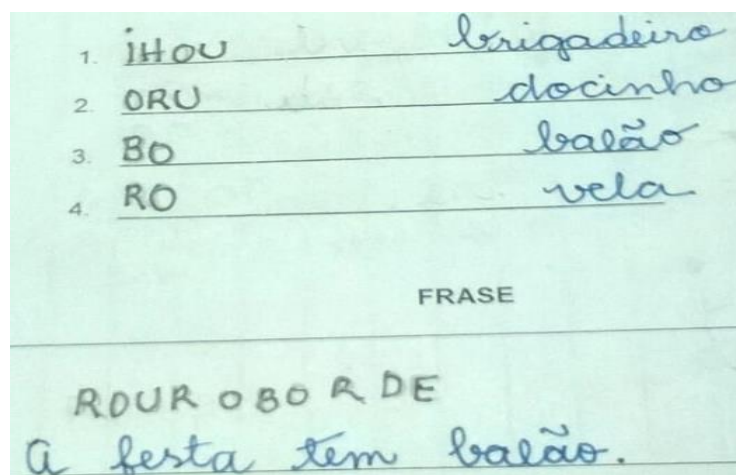 1. iHOU brigadeiro
2. ORU docinho
3. BO balão
4. RO vela
FRASE
ROUR OBO R DE
a festa tem balão.